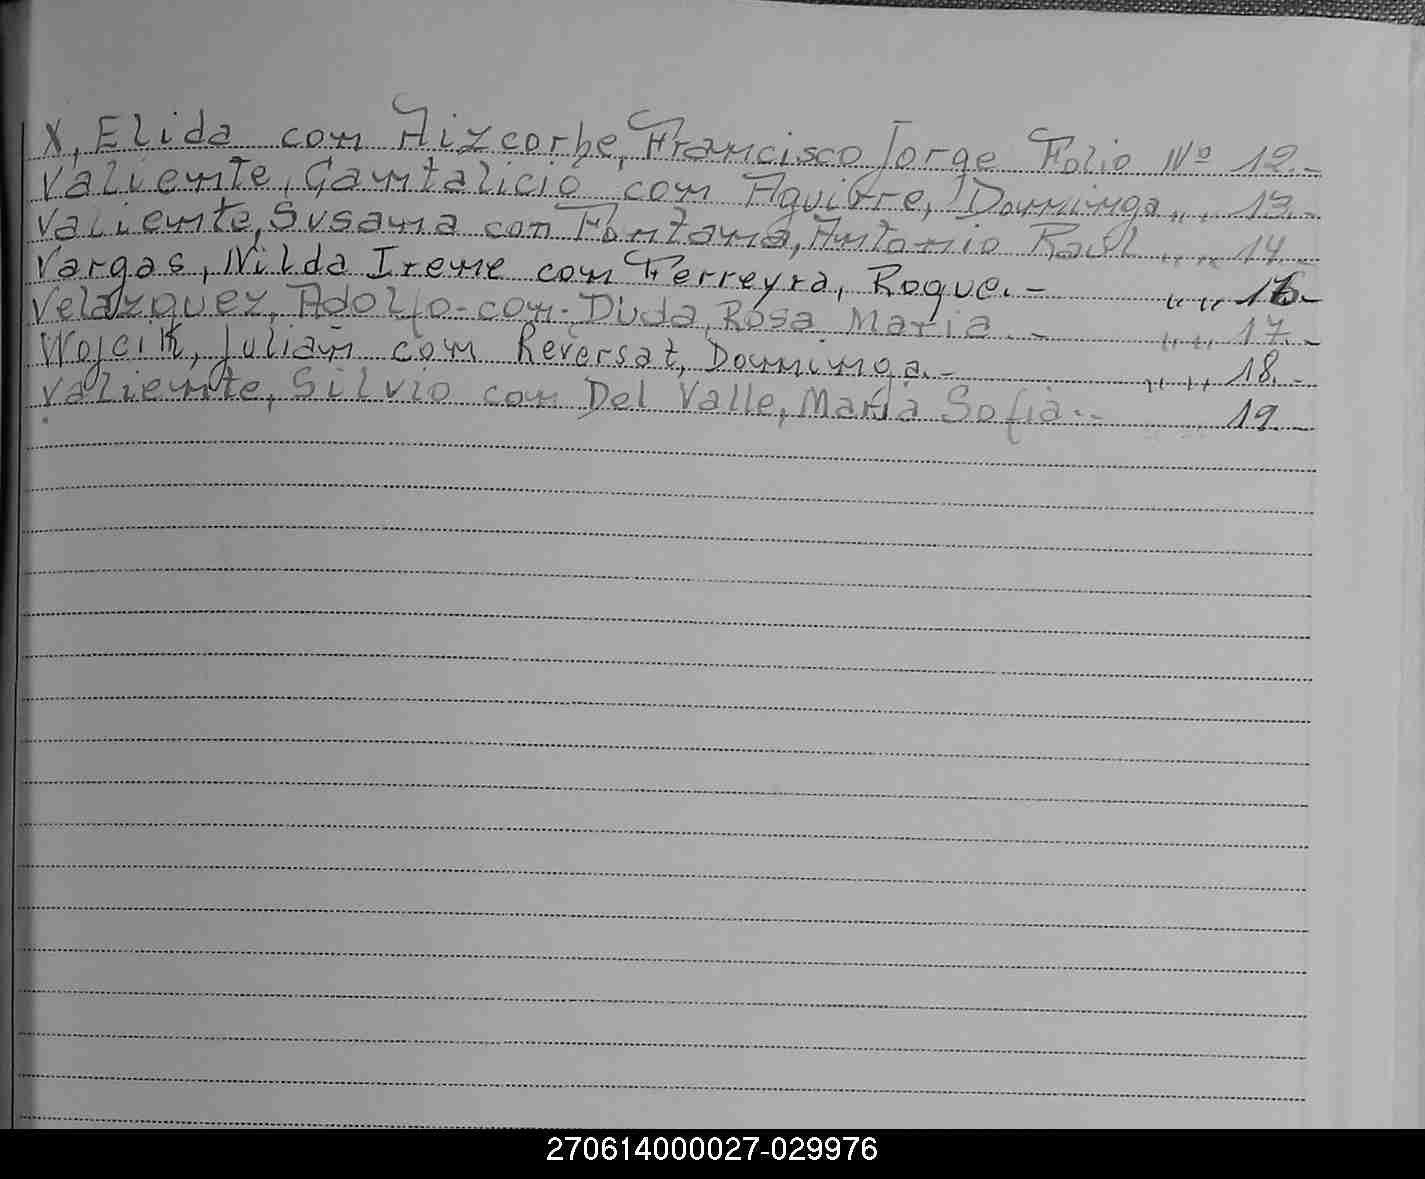 X, Elida con Aizcorbe, Francisco Jorge Folio Nº 12.-
Valiente, Gantalicio con Aguirre, Dominga „ „ 13.-
Valiente, Susana con Fontana, Antonio Raúl „ „ 14.-
Vargas, Nilda Irene con Ferreyra, Roque.- „ „ 16.-
Velazquez, Adolfo-con-Duda, Rosa Maria.- „ „ 17.-
Wojcik, Julian con Reversat, Dominga.- „ „ 18.-
Valiente, Silvio con Del Valle, Maria Sofia.- 19.-
270614000027-029976